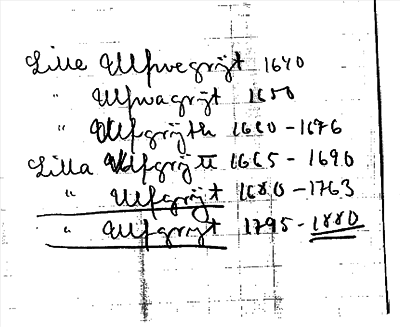 Lille Ulfwegrijt 1640
" Ulfwagrijt 1650
" Ulfgrijth 1660 - 1676
Lilla Ulfgrijtt 1665 - 1690
" Ulfgrijt 1680 - 1763
" Ulfgrijt 1795 - 1880